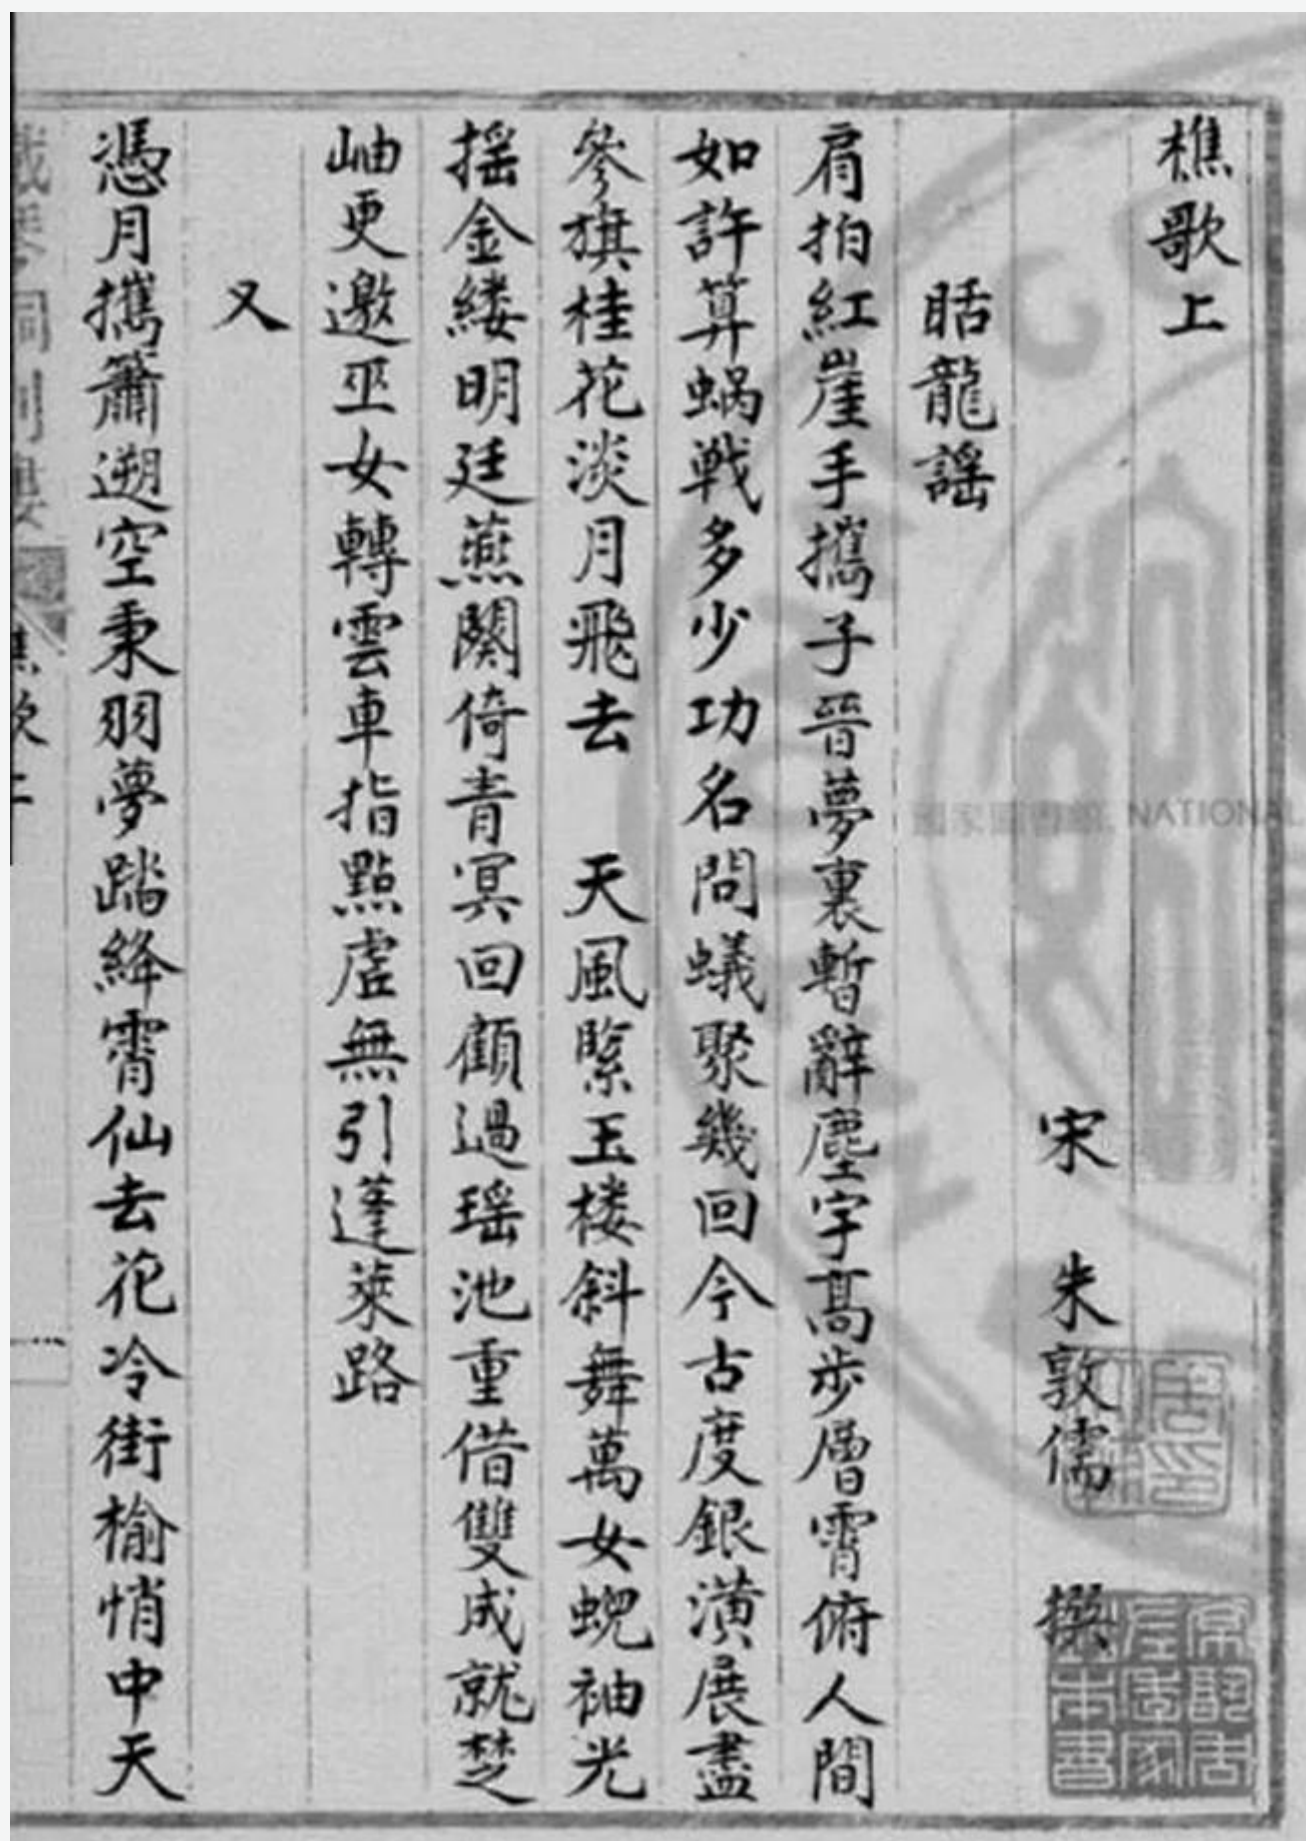 樵歌上
宋　朱敦儒　撰
聒龍謡
肩拍紅崖手攜子晉夢裏暫辭塵宇髙步層霄俯人間
如許算蝸戰多少功名問蟻聚幾回今古度銀潢展盡
參旗桂花淡月飛去　天風緊玉楼斜舞萬女蜺袖光
揺金縷明廷薰闋倚青冥回顧過瑶池重借雙成就楚
岫更邀巫女轉雲車指點虗無引蓬萊路
又
憑月攜簫遡空秉羽夢踏絳霄仙去花冷街榆悄中天
國家圖書館 NATIONAL